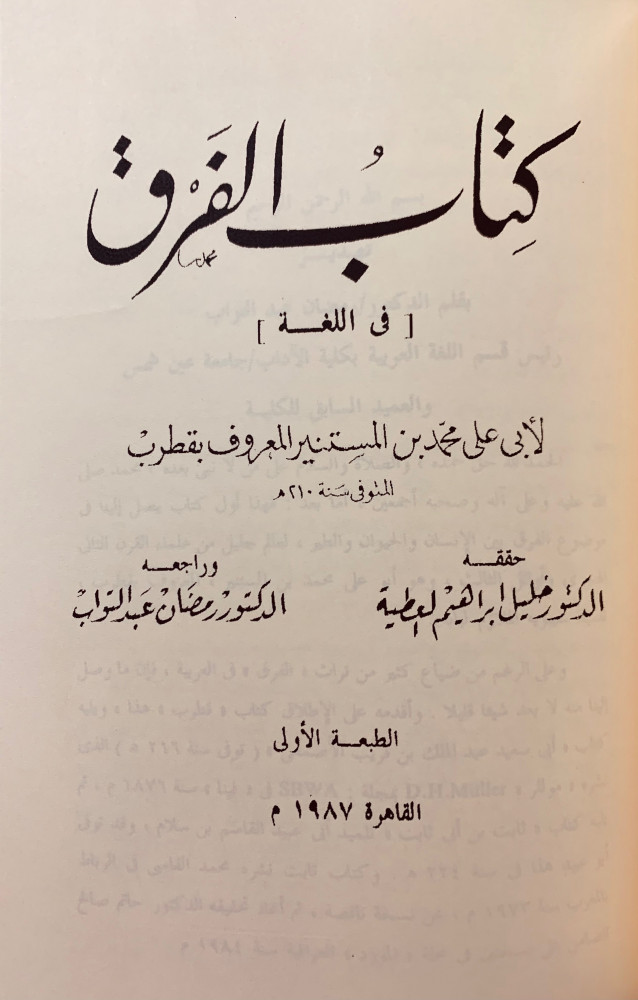 كِتَابُ الفَرْق
[ فى اللغــة ]
لأبى على محمّد بن المستنير المعروف بقطرب
المتوفى سَنة ٢١٠ هـ
حققــه
الدكتور خليل ابراهيم العطية
وراجعــه
الدكتور رمضان عبد التواب
الطبعــة الأولى
القاهرة ١٩٨٧ م